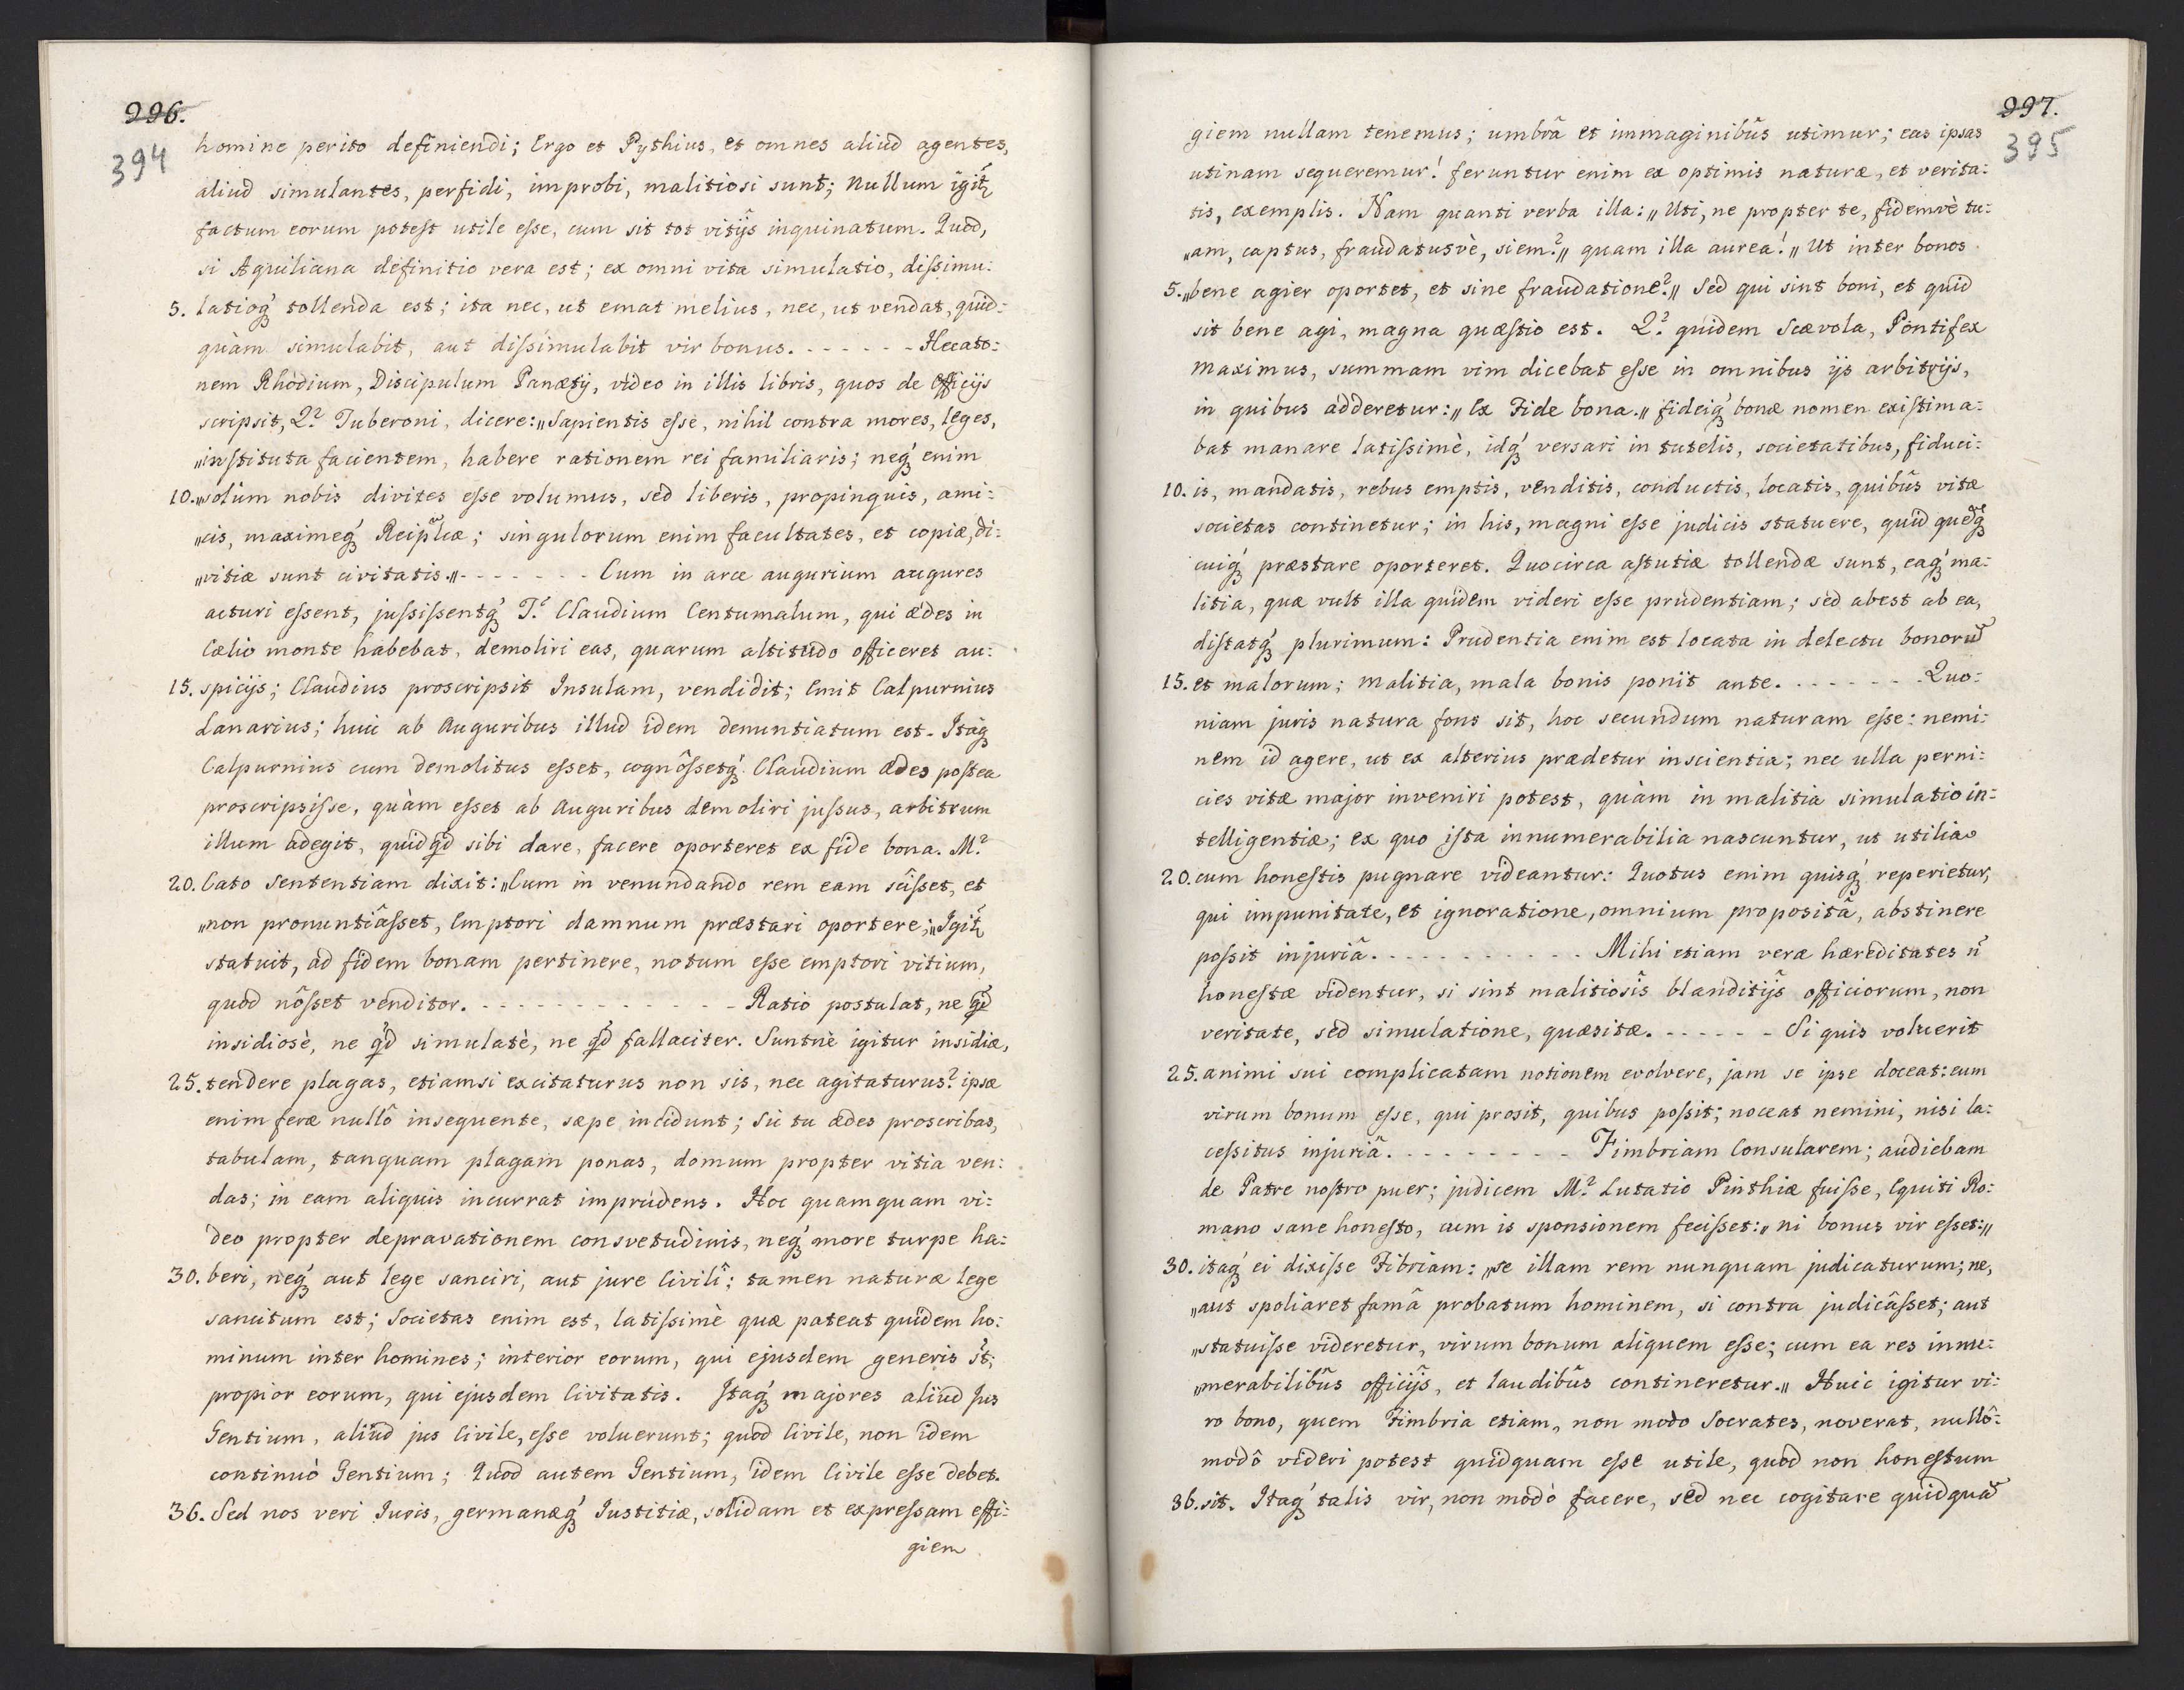 996.
394
homine perito definiendi; Ergo et Pythius, et omnes aliud agentes,
aliud simulantes, perfidi, improbi, malitiosi sunt; Nullum igitr
factum eorum potest utile esse, cum sit tot vitijs inquinatum. Quod,
si Aquiliana definitio vera est; ex omni vita simulatio, dissimu:
5. latioq́ tollenda est; ita nec, ut emat melius, nec, ut vendat, quid:
quàm simulabit, aut dissimulabit vir bonus. - - - - - - Hecato:
nem Rhodium, Discipulum Panætij, video in illis libris, quos de Officijs
scripsit, Q? Tuberoni, dicere: „Sapientis esse, nihil contra mores, leges,
„instituta facientem, habere rationem rei familiaris; neq́ enim
10. „solùm nobis divites esse volumus, sed liberis, propinquis, ami:
„cis, maximeq́ Reiplicæ; singulorum enim facultates, et copiæ, di:
„vitiæ sunt civitatis.„ - - - - - - - Cum in arce augurium augures
acturi essent, jussissentq́ T? Claudium Centumalum, qui ædes in
Cælio monte habebat, demoliri eas, quarum altitudo officeret au:
15. spicijs; Claudius proscripsit Insulam, vendidit; Emit Calpurnius
Lanarius; huic ab Auguribus illud idem denuntiatum est. Itáq
Calpurnius cum demolitus esset, cognôssetq́ Claudium ædes postea
proscripsisse, quàm esset ab Auguribus demoliri jussus, arbitrum
illum adegit, quidqd sibi dare, facere oporteret ex fide bona. M?
20. Cato Sententiam dixit: „Cum in venundando rem eam scîsset, et
„non pronuntiâsset, Emptori damnum præstari oportere;„ Igitr
statuit, ad fidem bonam pertinere, notum esse emptori vitium,
quod nôsset venditor. - - - - - - - - - - - - - Ratio postulat, ne qd
insidiosè, ne qd simulatè, ne qd fallaciter. Suntnè igitur insidiæ,
25. tendere plagas, etiamsi excitaturus non sis, nec agitaturus? ipsæ
enim feræ nullô insequente, sæpe incidunt; Sic tu ædes proscribas,
tabulam, tanquam plagam ponas, domum propter vitia ven:
das; in eam aliquis incurrat imprudens. Hoc quamquam vi:
deo propter depravationem consvetudinis, neq́ more turpe ha:
30. beri, neq́ aut lege sanciri, aut jure Civilî; tamen naturæ lege
sancitum est; Societas enim est, latissimè quæ pateat quidem ho:
minum inter homines; interior eorum, qui ejusdem generis st;
propior eorum, qui ejusdem Civitatis. Itaq́ majores aliud Jus
Gentium, aliud jus Civile, esse voluerunt; quod Civile, non idem
continuò Gentium; Quod autem Gentium, idem Civile esse debet.
36. Sed nos veri Juris, germanæq́ Justitiæ, solidam et expressam effi:
giem
997.
395
giem nullam tenemus; umbrâ et immaginibûs utimur; eas ipsas
utinam sequeremur! feruntur enim ex optimis naturæ, et verita:
tis, exemplis. Nam quanti verba illa: „Uti, ne propter te, fidemvè tu:
„am, captus, fraudatusvè, siem?„ quam illa aurea! „Ut inter bonos
5. „bene agier oportet, et sine fraudatione?„ Sed qui sint boni, et quid
sit bene agi, magna quæstio est. Q? quidem Scævola, Pontifex
Maximus, summam vim dicebat esse in omnibus ijs arbitrijs,
in quibus adderetur: „Ex Fide bona.„ fideiq́ bonæ nomen existima:
bat manare latissimè, idq́ versari in tutelis, societatibus, fiduci:
10. is, mandatis, rebus emptis, venditis, conductis, locatis, quibûs vitæ
societas continetur; in his, magni esse judicis statuere, quid quemq́
cuiq́ præstare oporteret. Quocirca astutiæ tollendæ sunt, eaq́ ma:
litia, quæ vult illa quidem videri esse prudentiam; sed abest ab ea,
distatq́ plurimum: Prudentia enim est locata in delectu bonorũ
15. et malorum; malitia, mala bonis ponit ante. - - - - - - - Quo:
niam juris natura fons sit, hoc secundum naturam esse: nemi:
nem id agere, ut ex alterius prædetur inscientia; nec ulla perni:
cies vitæ major inveniri potest, quàm in malitia simulatio in:
telligentiæ; ex quo ista innumerabilia nascuntur, ut utilia
20. cum honestis pugnare videantur: Quotus enim quisq́ reperietur,
qui impunitate, et ignoratione, omnium propositâ, abstinere
possit injuriâ. - - - - - - - - - - - Mihi etiam veræ hæreditates ñ
honestæ videntur, si sint malitiosîs blanditijs officiorum, non
veritate, sed simulatione, quæsitæ. - - - - - - Si quis voluerit
25. animi sui complicatam notionem evolvere, jam se ipse doceat: eum
virum bonum esse, qui prosit, quibus possit; noceat nemini, nisi la:
cessitus injuriâ. - - - - - - - - - Fimbriam Consularem; audiebam
de Patre nostro puer; judicem M? Lutatio Pinthiæ fuisse, Equiti Ro:
mano sane honesto, cum is sponsionem fecisset: „ni bonus vir esset:„
30. itaq́ ei dixisse Fibriam: „se illam rem nunquam judicaturum; ne,
„aut spoliaret famâ probatum hominem, si contra judicâsset; aut
„statuisse videretur, virum bonum aliquem esse; cum ea res innu:
„merabilibûs officijs, et laudibûs contineretur.„ Huic igitur vi:
ro bono, quem Fimbria etiam, non modo Socrates, noverat, nullô:
modô videri potest quidquam esse utile, quod non honestum
36. sit. Itaq́ talis vir, non modò facere, sed nec cogitare quidquã